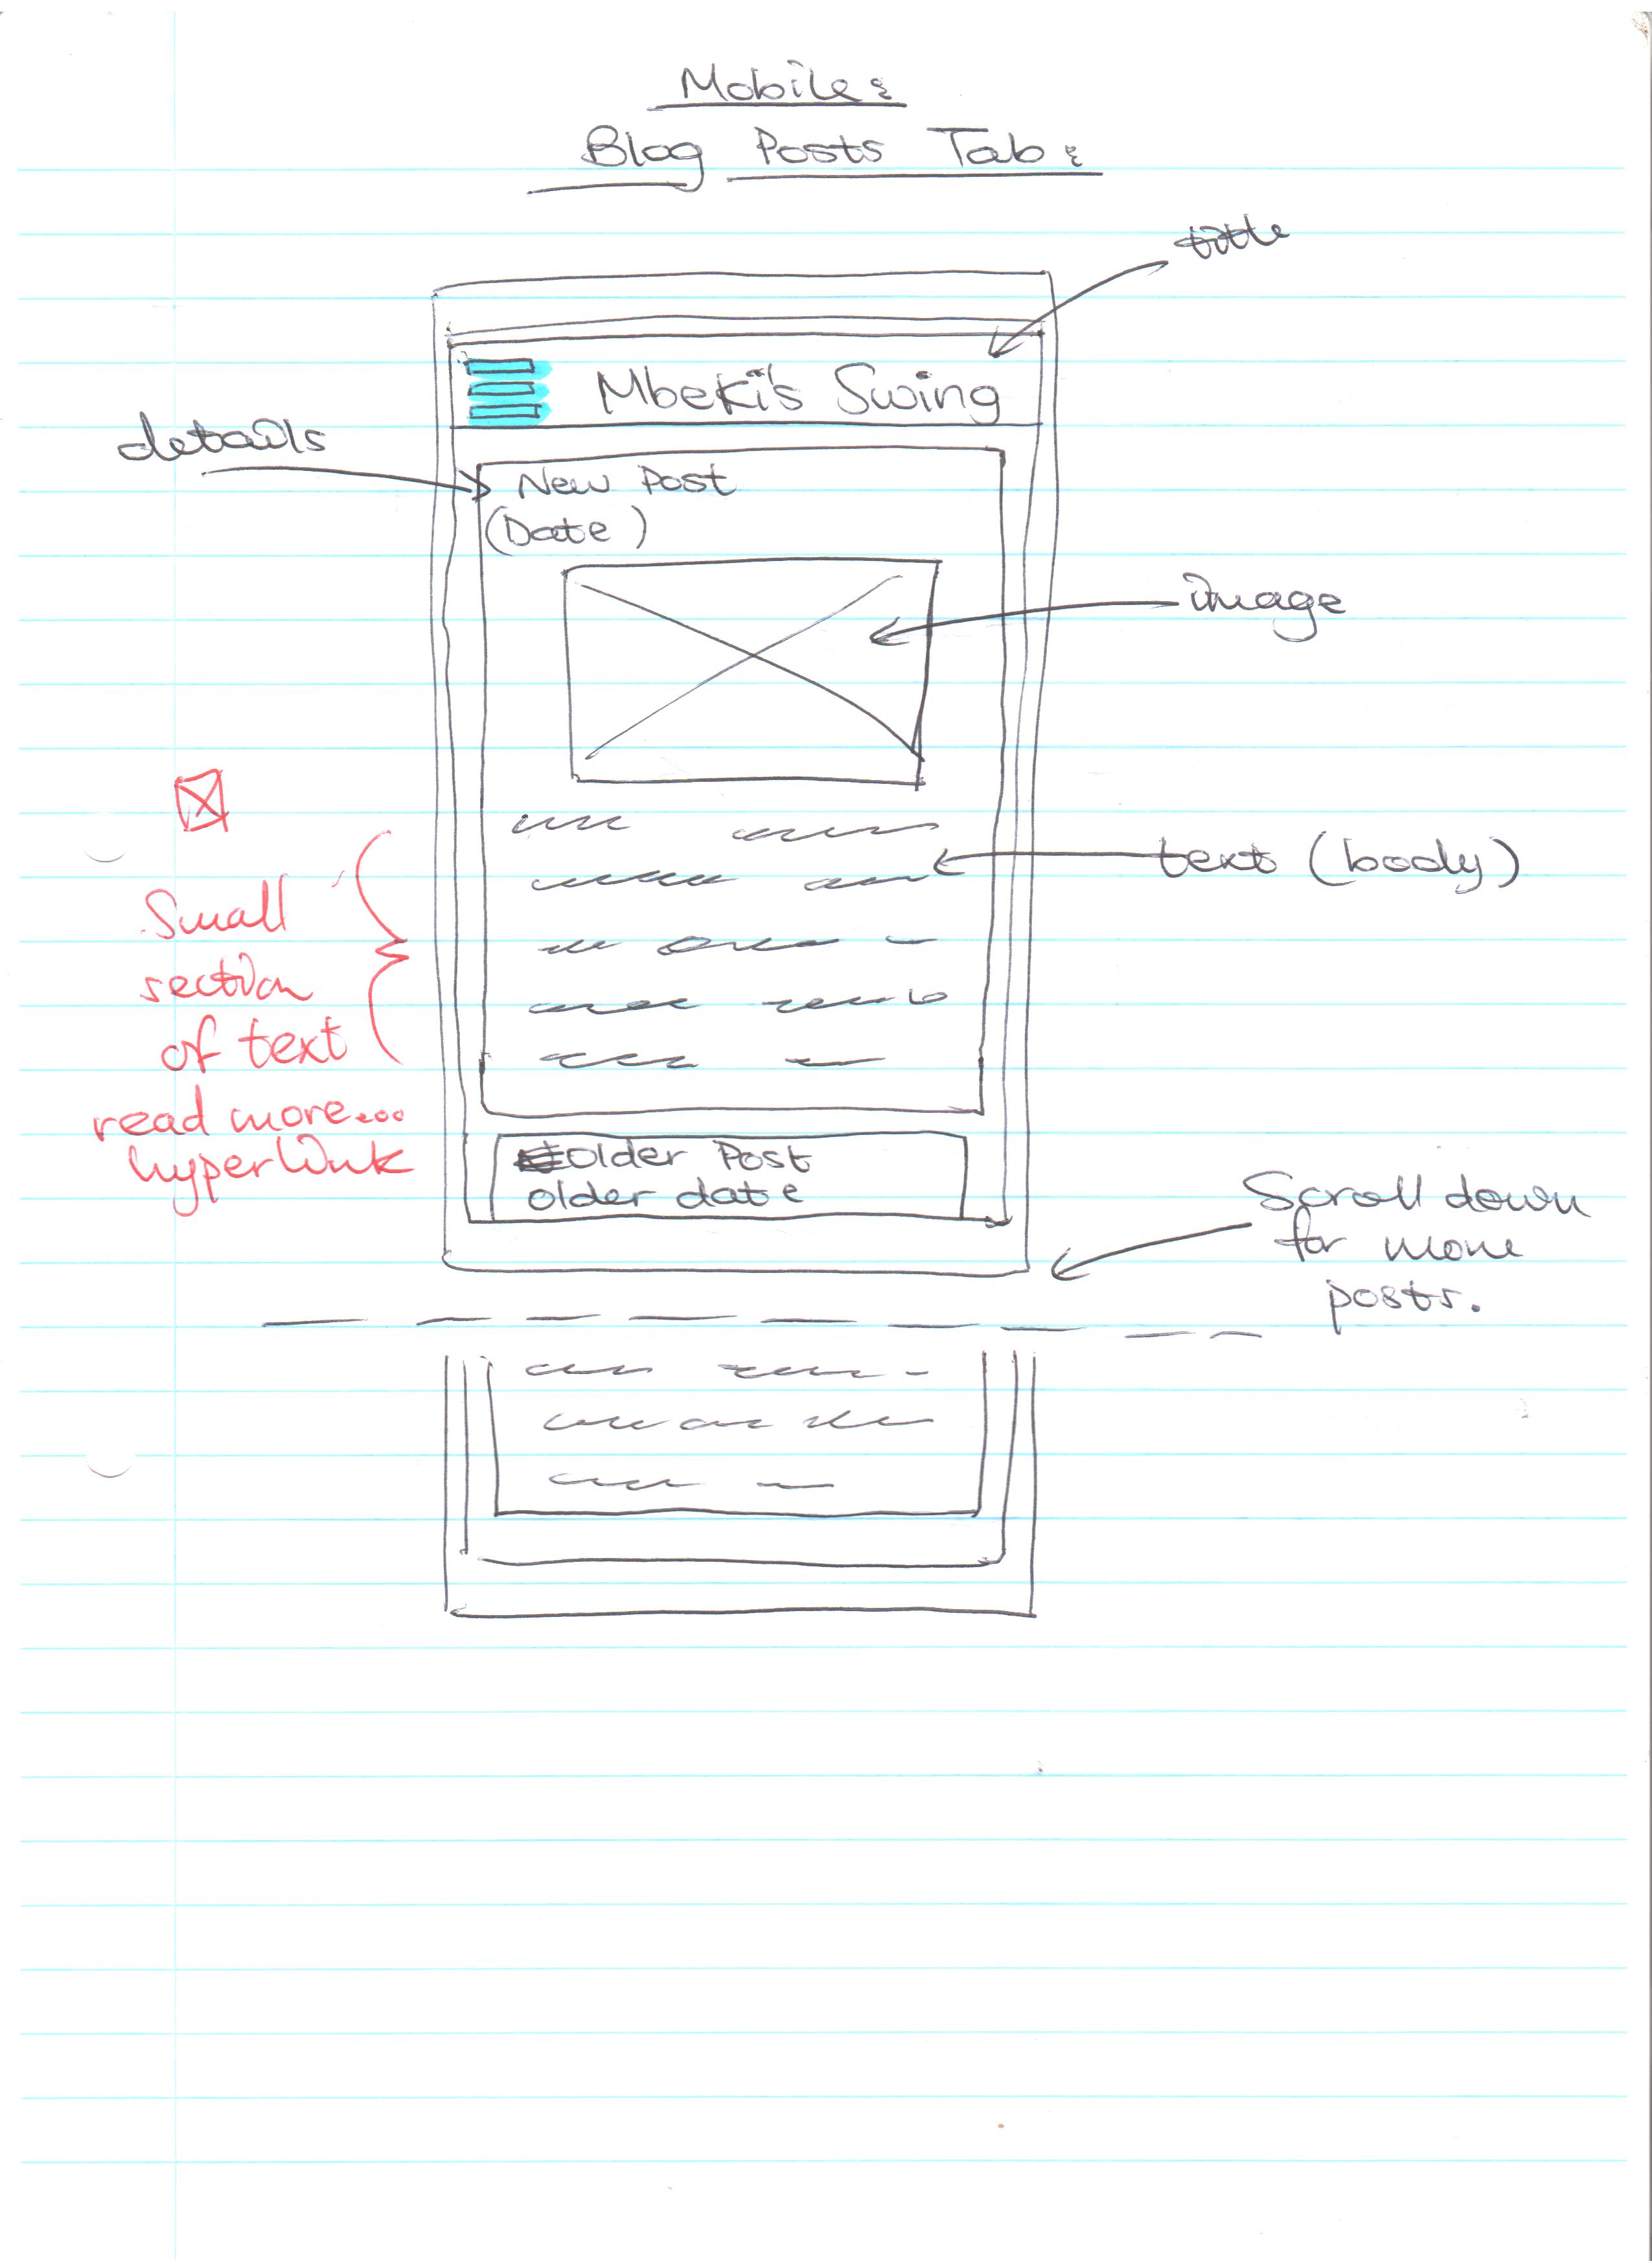 Mobile:
Blog Posts Tab:
title
Mbeki's Swing
details
New Post
(Date)
image
text (body)
Small
section
of text
read more...
hyperlink
Older Post
older date
Scroll down
for more
posts.